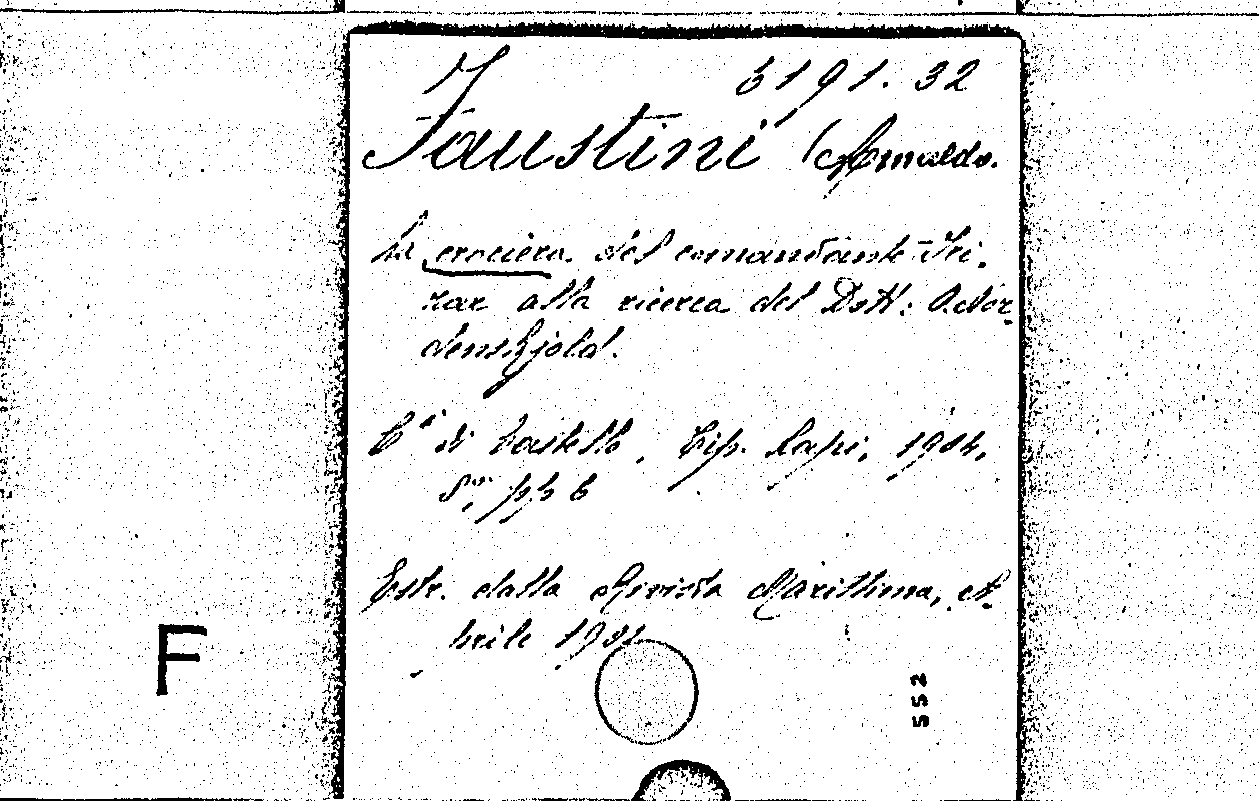 F 5191.32
Faustini (Arnaldo.
La crociera del comandante Iri-
zar alla ricerca del Dott: O. Nor-
denskjold.
C.ª di Castello, Tip. Lapi, 1904,
8º, pp 6
Estr. dalla Rivista Marittima, A-
prile 1904
F
552